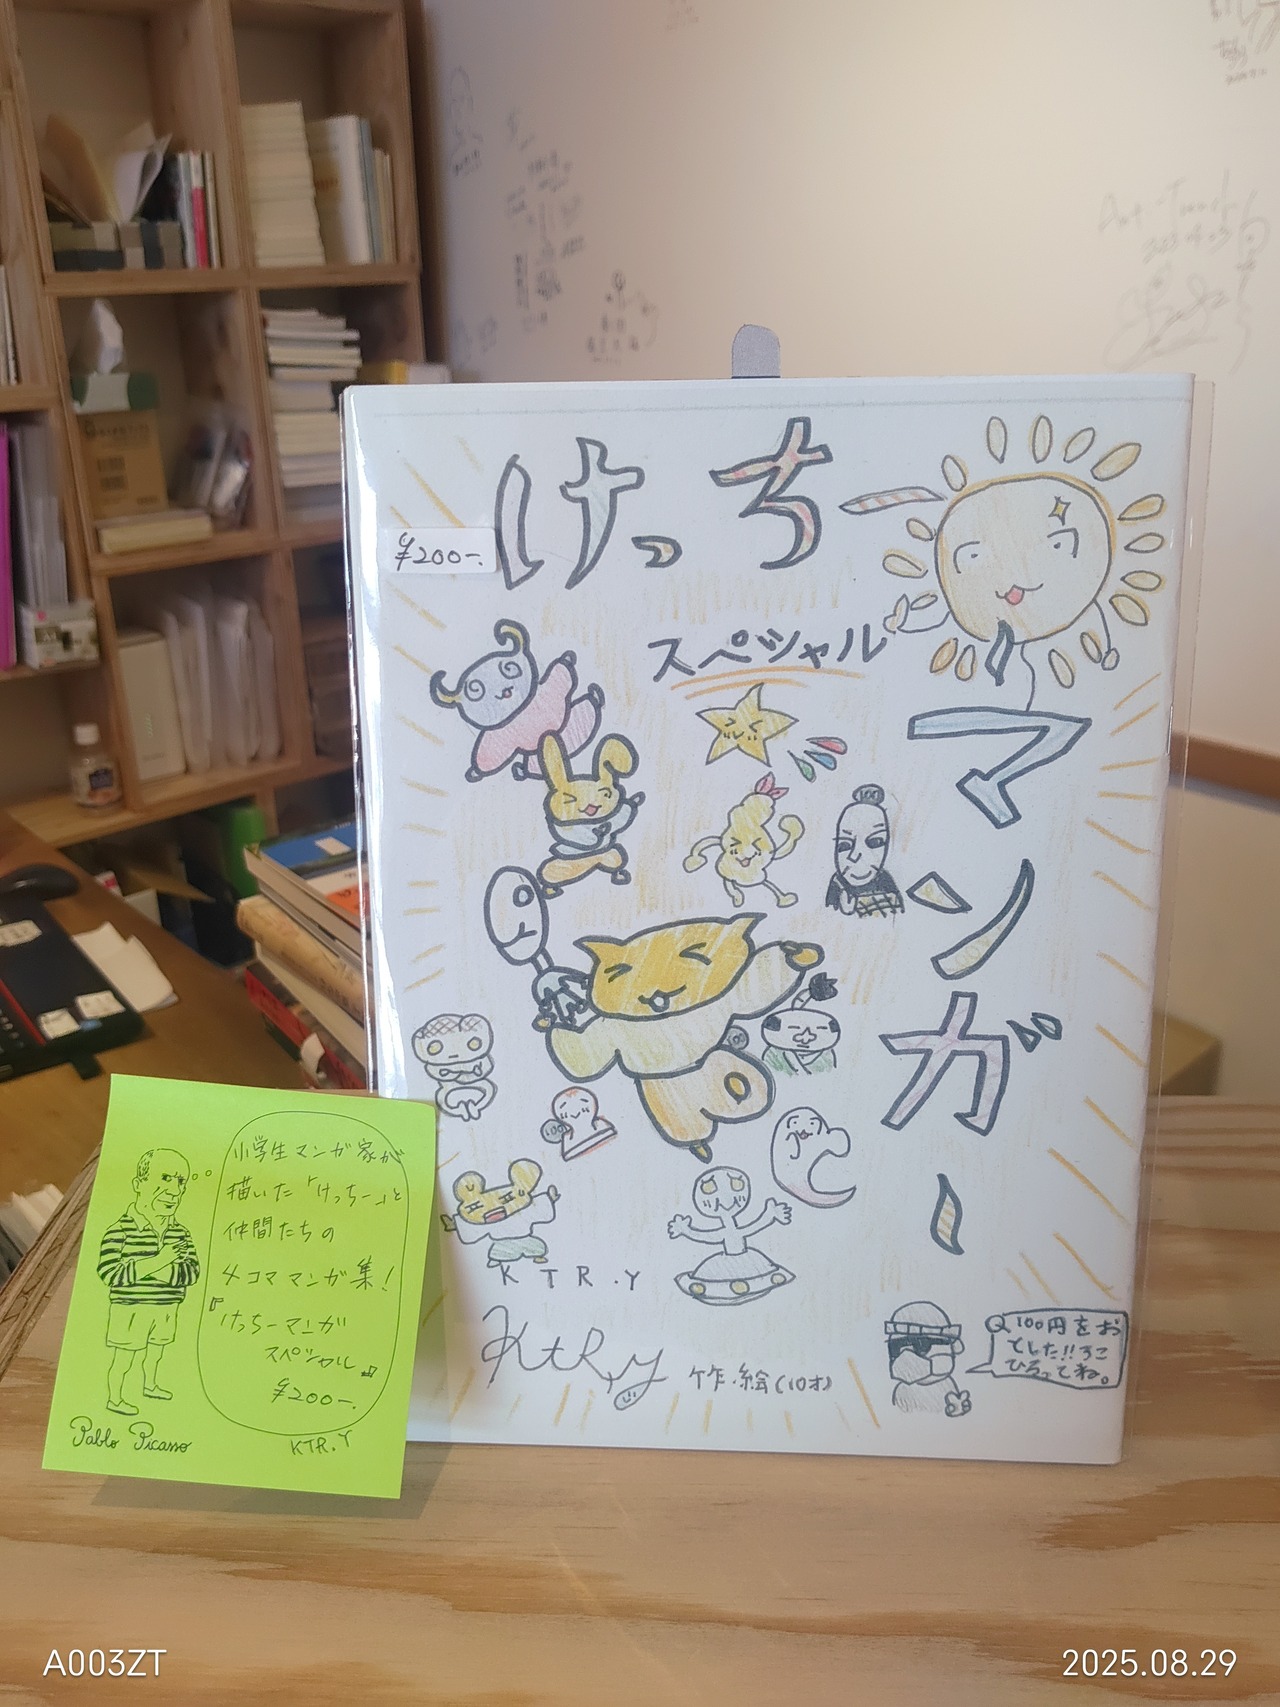 けっちー
¥200-.
スペシャル
マンガー
100
100
K T R . Y
KtRy
作・絵(10才)
100円をお
とした!!
ひろってね。
小学生マンガ家が
描いた「けっちー」と
仲間たちの
4コママンガ集!
『けっちーマンガ
スペシャル』
¥200-.
Pablo Picasso
KTR.Y
A003ZT
2025.08.29